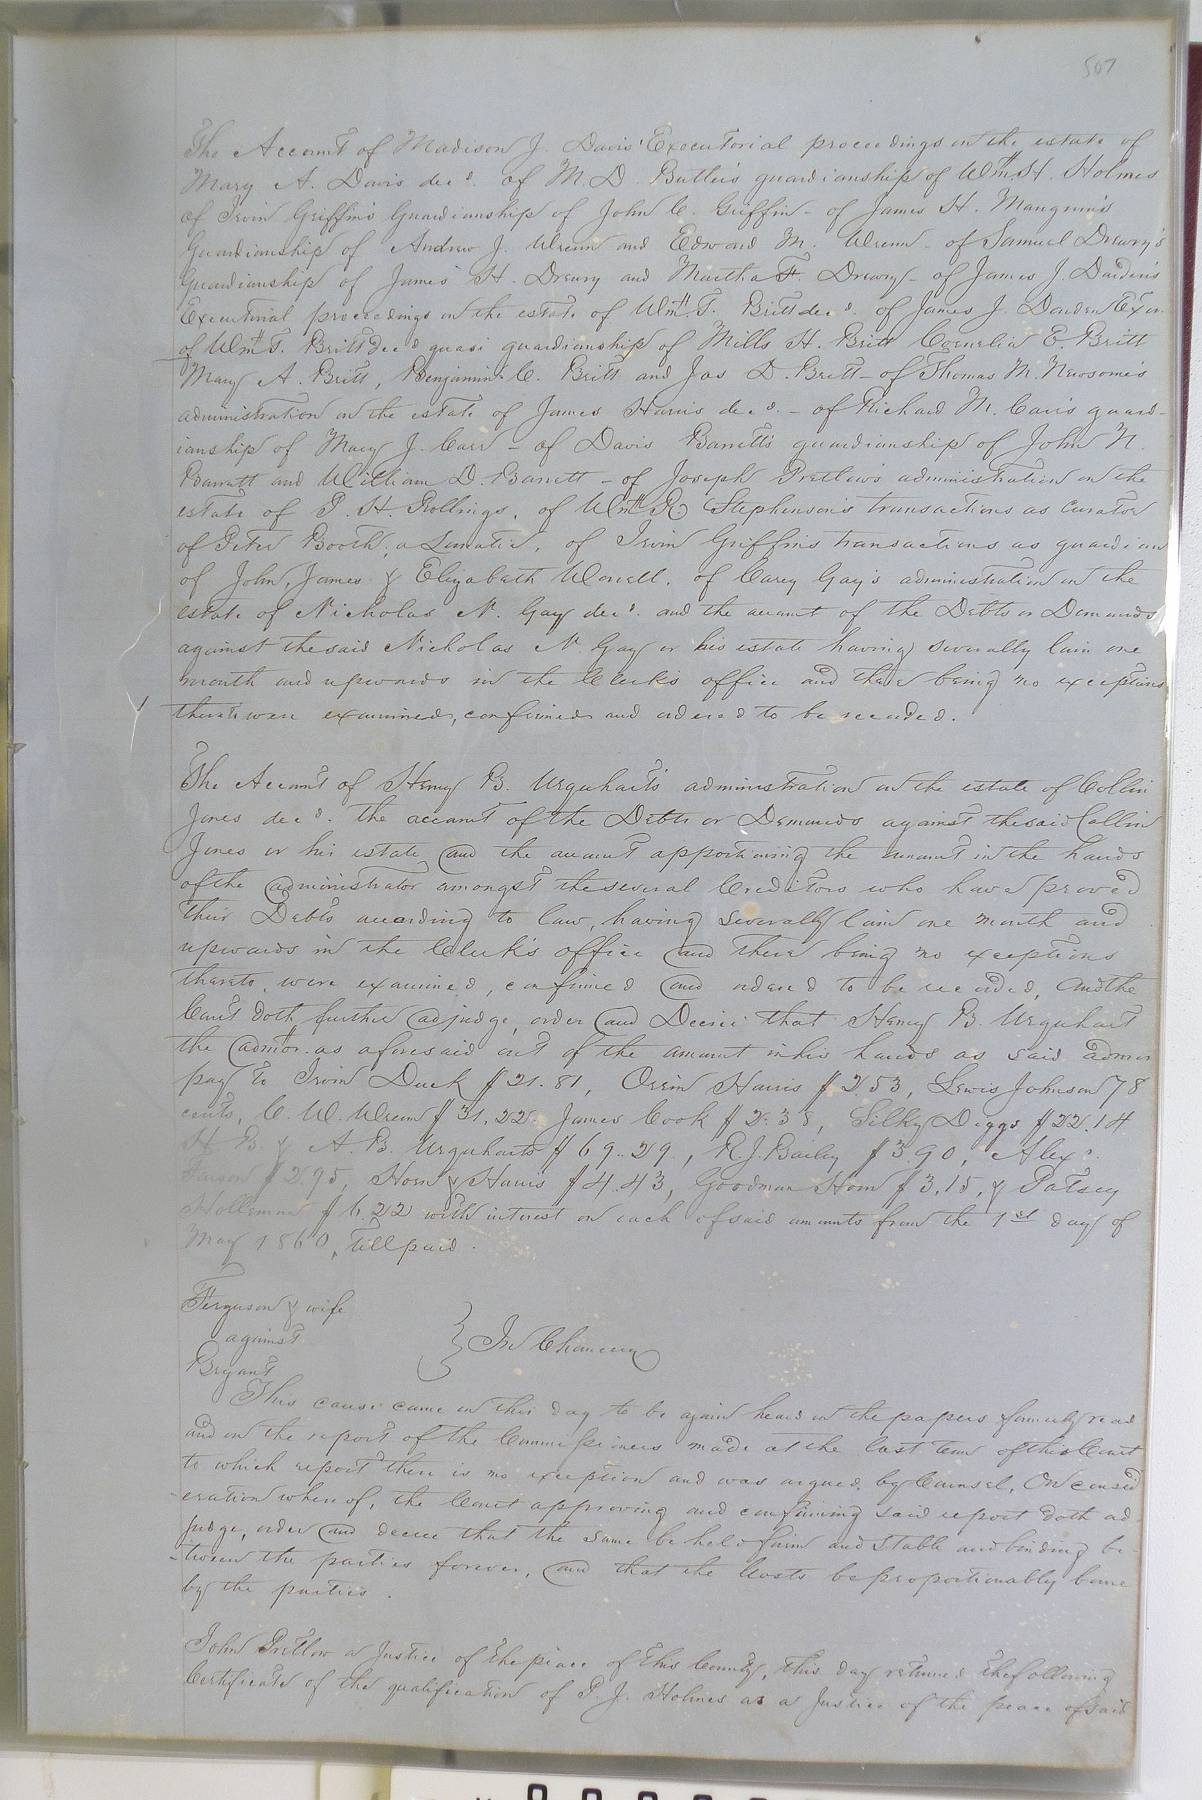 507
The Account of Madison J. Davis' Executorial proceedings on the estate of
Mary A. Davis decd. of M. D. Butler's guardianship of Wm. H. Holmes
of Irvin Griffin's Guardianship of John C. Griffin - of James H. Mangum's
Guardianship of Andrew J. Wrenn and Edward M. Wrenn - of Samuel Drewry's
Guardianship of James H. Drewry and Martha F. Drewry - of James J. Darden's
Executorial proceedings on the estate of Wm. T. Britt decd. of James J. Darden Exor.
of Wm. T. Britt decd quasi guardianship of Mills H. Britt Cornelia E. Britt
Mary A. Britt, Benjamin C. Britt and Jas D. Britt - of Thomas M. Newsome's
administration on the estate of James Harris decd. - of Richard M. Carr's guard-
ianship of Mary J. Carr - of Davis Barrett's guardianship of John N.
Barrett and William D. Barrett - of Joseph Pretlow's administration on the
estate of P. H. Rollings, of Wm. R. Stephenson's transactions as Curator
of Peter Booth, a Lunatic, of Irvin Griffin's transactions as guardian
of John, James & Elizabeth Worrell, of Carey Gay's administration on the
estate of Nicholas N. Gay decd. and the account of the Debts or Demands
against the said Nicholas N. Gay or his estate having severally lain one
month and upwards in the Clerk's office and there being no exceptions
thereto were examined, confirmed and ordered to be recorded.
The Account of Henry B. Urquhart's administration on the estate of Collin
Jones decd. the account of the Debts or Demands against the said Collin
Jones or his estate and the account apportioning the amount in the hands
of the administrator amongst the several Creditors who have proved
their Debts according to law, having severally lain one month and
upwards in the Clerk's office and there being no exceptions
thereto, were examined, confirmed and ordered to be recorded, and the
Court doth further adjudge, order and Decree that Henry B. Urquhart
the admor. as aforesaid out of the amount in his hands as said admor
pay to Irvin Duck $21.81, Orrin Harris $2.53, Lewis Johnson 78
cents, C. W. Wrenn $31.22. James Cook $2.38, Silky Diggs $22.14
H. B. & A. B. Urquharts $69.29, R. J. Bailey $3.90, Alexr.
$2.95, Horn & Harris $4.43, Goodman Horn $3.15, & Patsey
Holleman $6.22 with interest on each of said amounts from the 1st day of
May 1860, till paid.
Ferguson & wife
against
Bryant
} In Chancery
This cause came on this day to be again heard on the papers formerly read
and on the report of the Commissioners made at the last term of this Court
to which report there is no exception and was argued by Counsel, On consid
eration whereof, the Court approving and confirming said report doth ad
judge, order and decree that the same be held firm and stable and binding be-
-tween the parties forever, and that the Costs be proportionably borne
by the parties.
John Pretlow a Justice of the peace of this County, this day returned the following
Certificate of the qualification of P. J. Holmes as a Justice of the peace of said